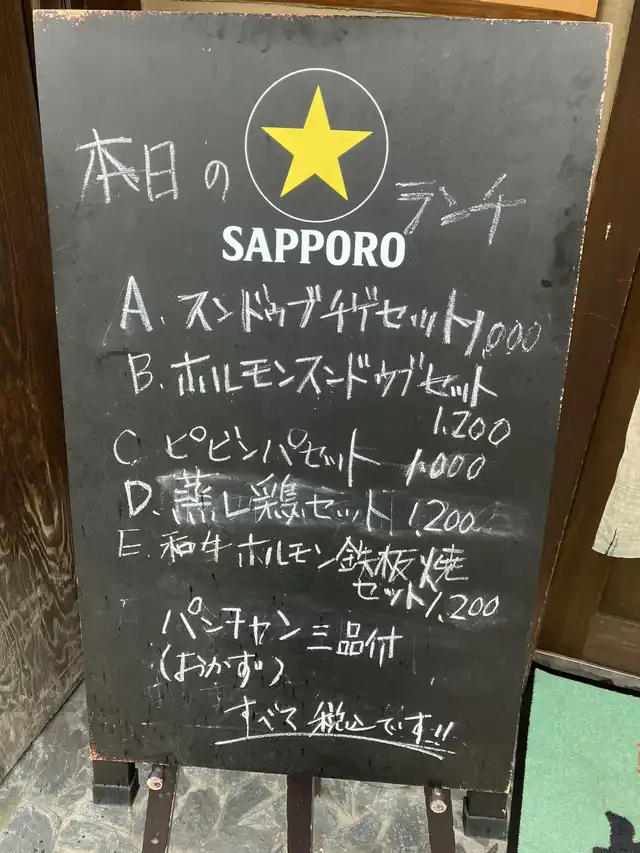 本日の ランチ
SAPPORO
A. スンドゥブチゲセット 1,000
B. ホルモンスンドゥブセット
1.200
C ピビンパセット 1,000
D. 蒸し鶏セット 1,200
E. 和牛ホルモン鉄板焼
セット 1,200
パンチャン三品付
(おかず)
すべて税込です!!